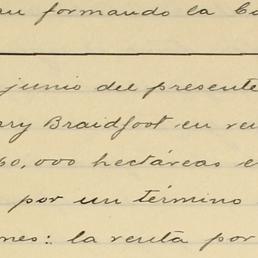 au formando la Co
junio del presente
ary Braidfoot en ren
60,000 hectáreas e
por un término
nes: la renta por